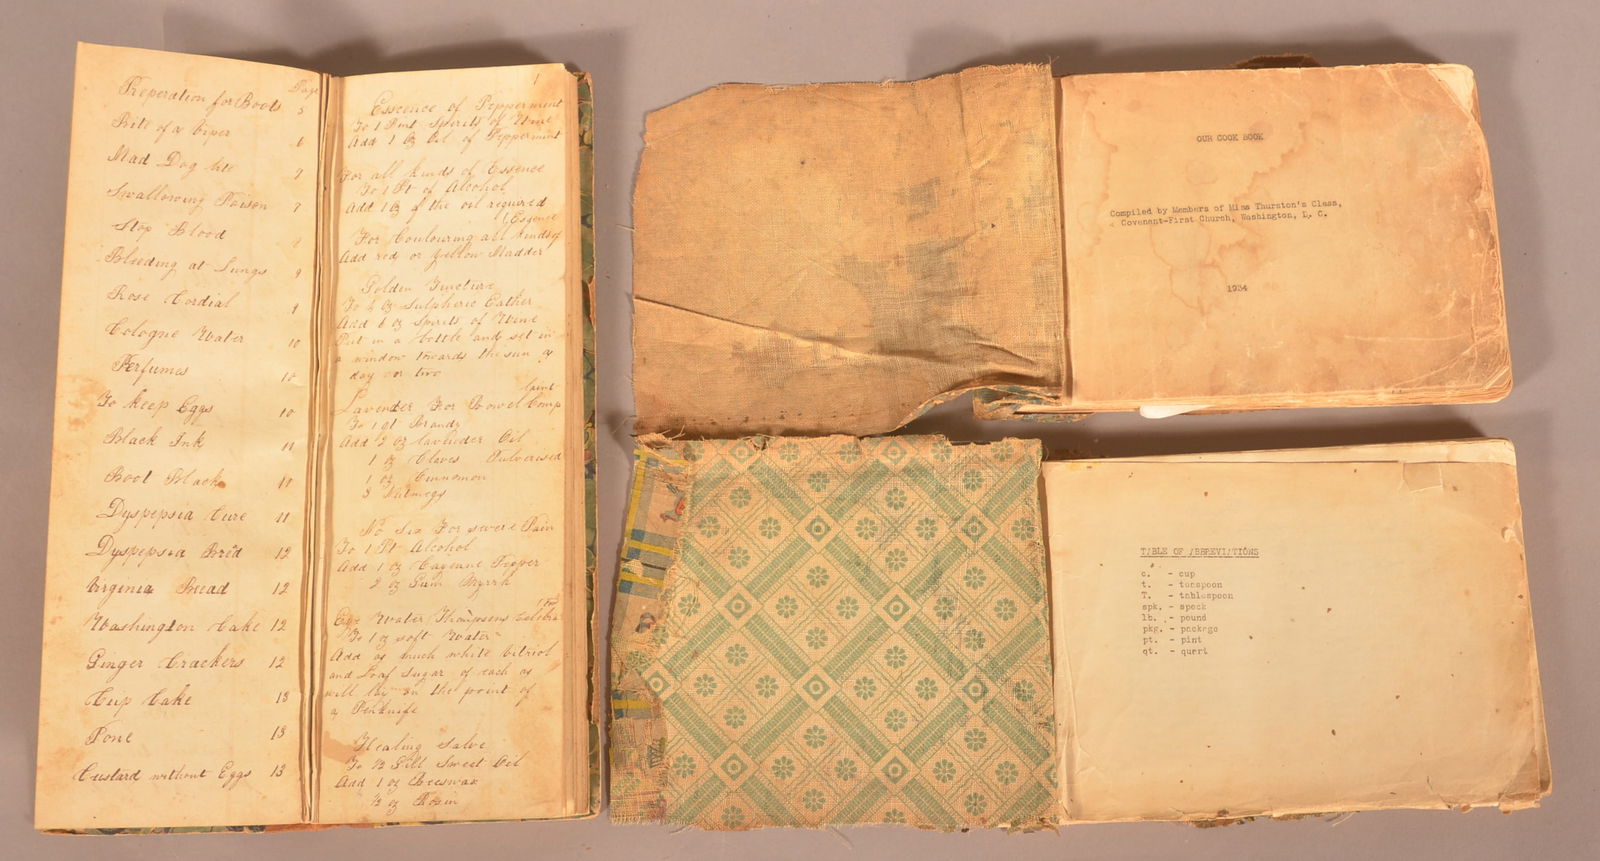 Page
Preperation for Boots 5
Bite of a Viper 6
Mad Dog bite 7
Swallowing Poison 7
Stop Blood
Bleeding at Lungs 9
Rose Cordial 9
Cologne Water 10
Perfumes 10
To keep Eggs 10
Black Ink 11
Boot Black 11
Dyspepsia Cure 11
Dyspepsia Bred 12
Virginia Bread 12
Washington Cake 12
Ginger Crackers 12
Cup Cake 13
Pone 13
Custard without Eggs 13
1
Esscence of Pepperment
To 1 Pint Spirits of Wine
Add 1 oz Oil of Pepperment
For all kinds of Essence
To 1 Pt of Alcohol
Add 1 oz of the oil required
Essence
For Coulouring all kinds of
Add red or yellow Madder
Golden Tincture
To ½ oz Sulpheric Eather
Add 6 oz Spirits of Wine
Put in a bottle and set in
a window towards the sun a
day or two
Lavender For Bowel Comp
laint
To 1 qt Brandy
Add ½ oz lavender Oil
1 oz Cloves Pulverised
1 oz Cinnomon
3 Nutmegs
No Six For severe Pain
To 1 Pt Alcohol
Add 1 oz Cayenne Pepper
2 oz Gum Myrrh
Eye Water Thompsons Celebra
ted
To 1 oz soft Water
Add as much white Vitriol
and Loaf Sugar of each as
will lay on the point of
a Penknife
Healing Salve
To ½ Gill Sweet Oil
Add 1 oz Beeswax
½ oz Rosin
OUR COOK BOOK
Compiled by Members of Miss Thurston's Class,
Covenant-First Church, Washington, D. C.
1934
TABLE OF ABBREVIATIONS
c. - cup
t. - teaspoon
T. - tablespoon
spk. - speck
lb. - pound
pkg. - package
pt. - pint
qt. - quart